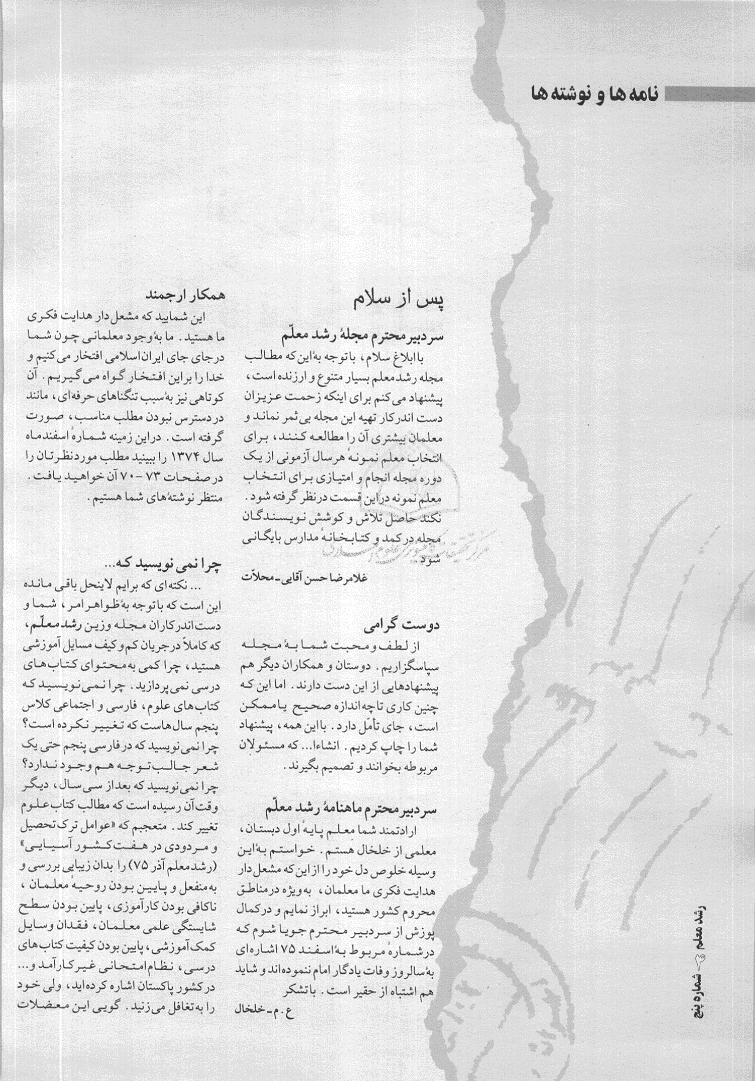 نامه ها و نوشته ها
پس از سلام
سردبیر محترم مجلهٔ رشد معلّم
با ابلاغ سلام، با توجه به این که مطالب
مجله رشد معلم بسیار متنوع و ارزنده است،
پیشنهاد می کنم برای اینکه زحمت عزیزان
دست اندرکار تهیه این مجله بی ثمر نماند و
معلمان بیشتری آن را مطالعه کنند، برای
انتخاب معلم نمونهٔ هر سال آزمونی از یک
دوره مجله انجام و امتیازی برای انتخاب
معلم نمونه در این قسمت در نظر گرفته شود.
نکند حاصل تلاش و کوشش نویسندگان
مجله در کمد و کتابخانهٔ مدارس بایگانی
شود.
غلامرضا حسن آقایی ـ محلاّت
دوست گرامی
از لطف و محبت شما به مجله
سپاسگزاریم. دوستان و همکاران دیگر هم
پیشنهادهایی از این دست دارند. اما این که
چنین کاری تا چه اندازه صحیح یا ممکن
است، جای تأمّل دارد. با این همه، پیشنهاد
شما را چاپ کردیم. انشاءا... که مسئولان
مربوطه بخوانند و تصمیم بگیرند.
سردبیر محترم ماهنامهٔ رشد معلّم
ارادتمند شما معلم پایهٔ اول دبستان،
معلمی از خلخال هستم. خواستم به این
وسیله خلوص دل خود را از این که مشعل دار
هدایت فکری ما معلمان، به ویژه در مناطق
محروم کشور هستید، ابراز نمایم و در کمال
پوزش از سردبیر محترم جویا شوم که
در شمارهٔ مربوط به اسفند ۷۵ اشاره ای
به سالروز وفات یادگار امام ننموده اند و شاید
هم اشتباه از حقیر است. با تشکر
ع. م ـ خلخال
همکار ارجمند
این شمایید که مشعل دار هدایت فکری
ما هستید. ما به وجود معلمانی چون شما
در جای جای ایران اسلامی افتخار می کنیم و
خدا را بر این افتخار گواه می گیریم. آن
کوتاهی نیز به سبب تنگناهای حرفه ای، مانند
در دسترس نبودن مطلب مناسب، صورت
گرفته است. در این زمینه شمارهٔ اسفند ماه
سال ۱۳۷۴ را ببینید مطلب مورد نظرتان را
در صفحات ۷۳ - ۷۰ آن خواهید یافت.
منتظر نوشته های شما هستیم.
چرا نمی نویسید که...
... نکته ای که برایم لاینحل باقی مانده
این است که با توجه به ظواهر امر، شما و
دست اندرکاران مجله وزین رشد معلّم،
که کاملاً در جریان کم و کیف مسایل آموزشی
هستید، چرا کمی به محتوای کتاب های
درسی نمی پردازید. چرا نمی نویسید که
کتاب های علوم، فارسی و اجتماعی کلاس
پنجم سال هاست که تغییر نکرده است؟
چرا نمی نویسید که در فارسی پنجم حتی یک
شعر جالب توجه هم وجود ندارد؟
چرا نمی نویسید که بعد از سی سال، دیگر
وقت آن رسیده است که مطالب کتاب علوم
تغییر کند. متعجبم که «عوامل ترک تحصیل
و مردودی در هفت کشور آسیایی»
(رشد معلم آذر ۷۵) را بدان زیبایی بررسی و
به منفعل و پایین بودن روحیهٔ معلمان،
ناکافی بودن کارآموزی، پایین بودن سطح
شایستگی علمی معلمان، فقدان وسایل
کمک آموزشی، پایین بودن کیفیت کتاب های
درسی، نظام امتحانی غیر کارآمد و...
در کشور پاکستان اشاره کرده اید، ولی خود
را به تغافل می زنید. گویی این معضلات
رشد معلم ۳۶ شماره پنج